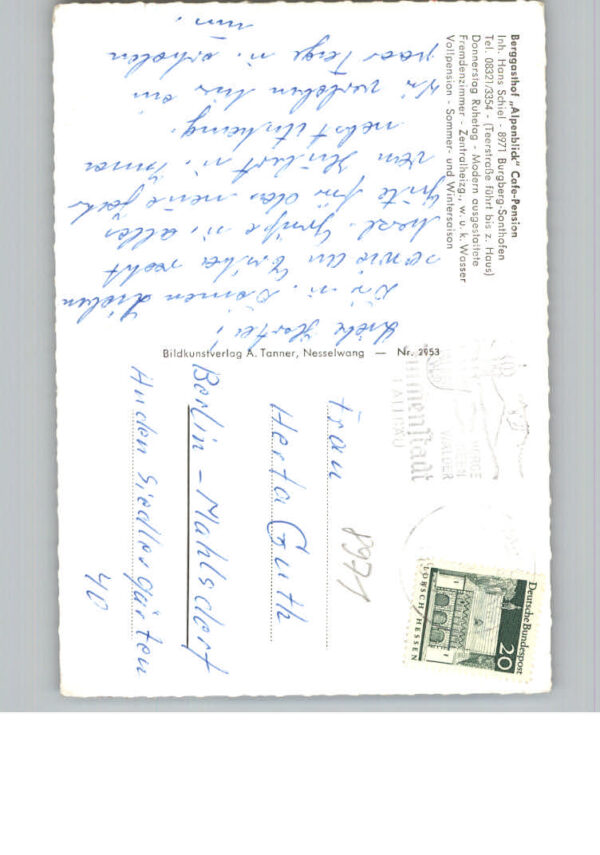 Berggasthof „Alpenblick" Cafe-Pension
Inh. Hans Schiel - 8971 Burgberg-Sonthofen
Tel. 08321/3354 - (Teerstraße führt bis z. Haus)
Donnerstag Ruhetag - Modern ausgestattete
Fremdenzimmer - Zentralheizg., w. u. k. Wasser
Vollpension - Sommer- und Wintersaison
Liebe Herta!
Dir u. Deinen Lieben
sowie an Erika recht
herzl. Grüße u. alles
Gute für das neue Jahr
von Hubert u. Irma
Wir verleben hier ein
paar Tage u. erholen
uns.
Bildkunstverlag A. Tanner, Nesselwang — Nr. 2953
Immenstadt
ALLGÄU
BERGE
SEEN
WÄLDER
Deutsche Bundespost
20
LORSCH/HESSEN
8971
Frau
Herta Guth
Berlin-Mahlsdorf
An den Siedlergärten
40